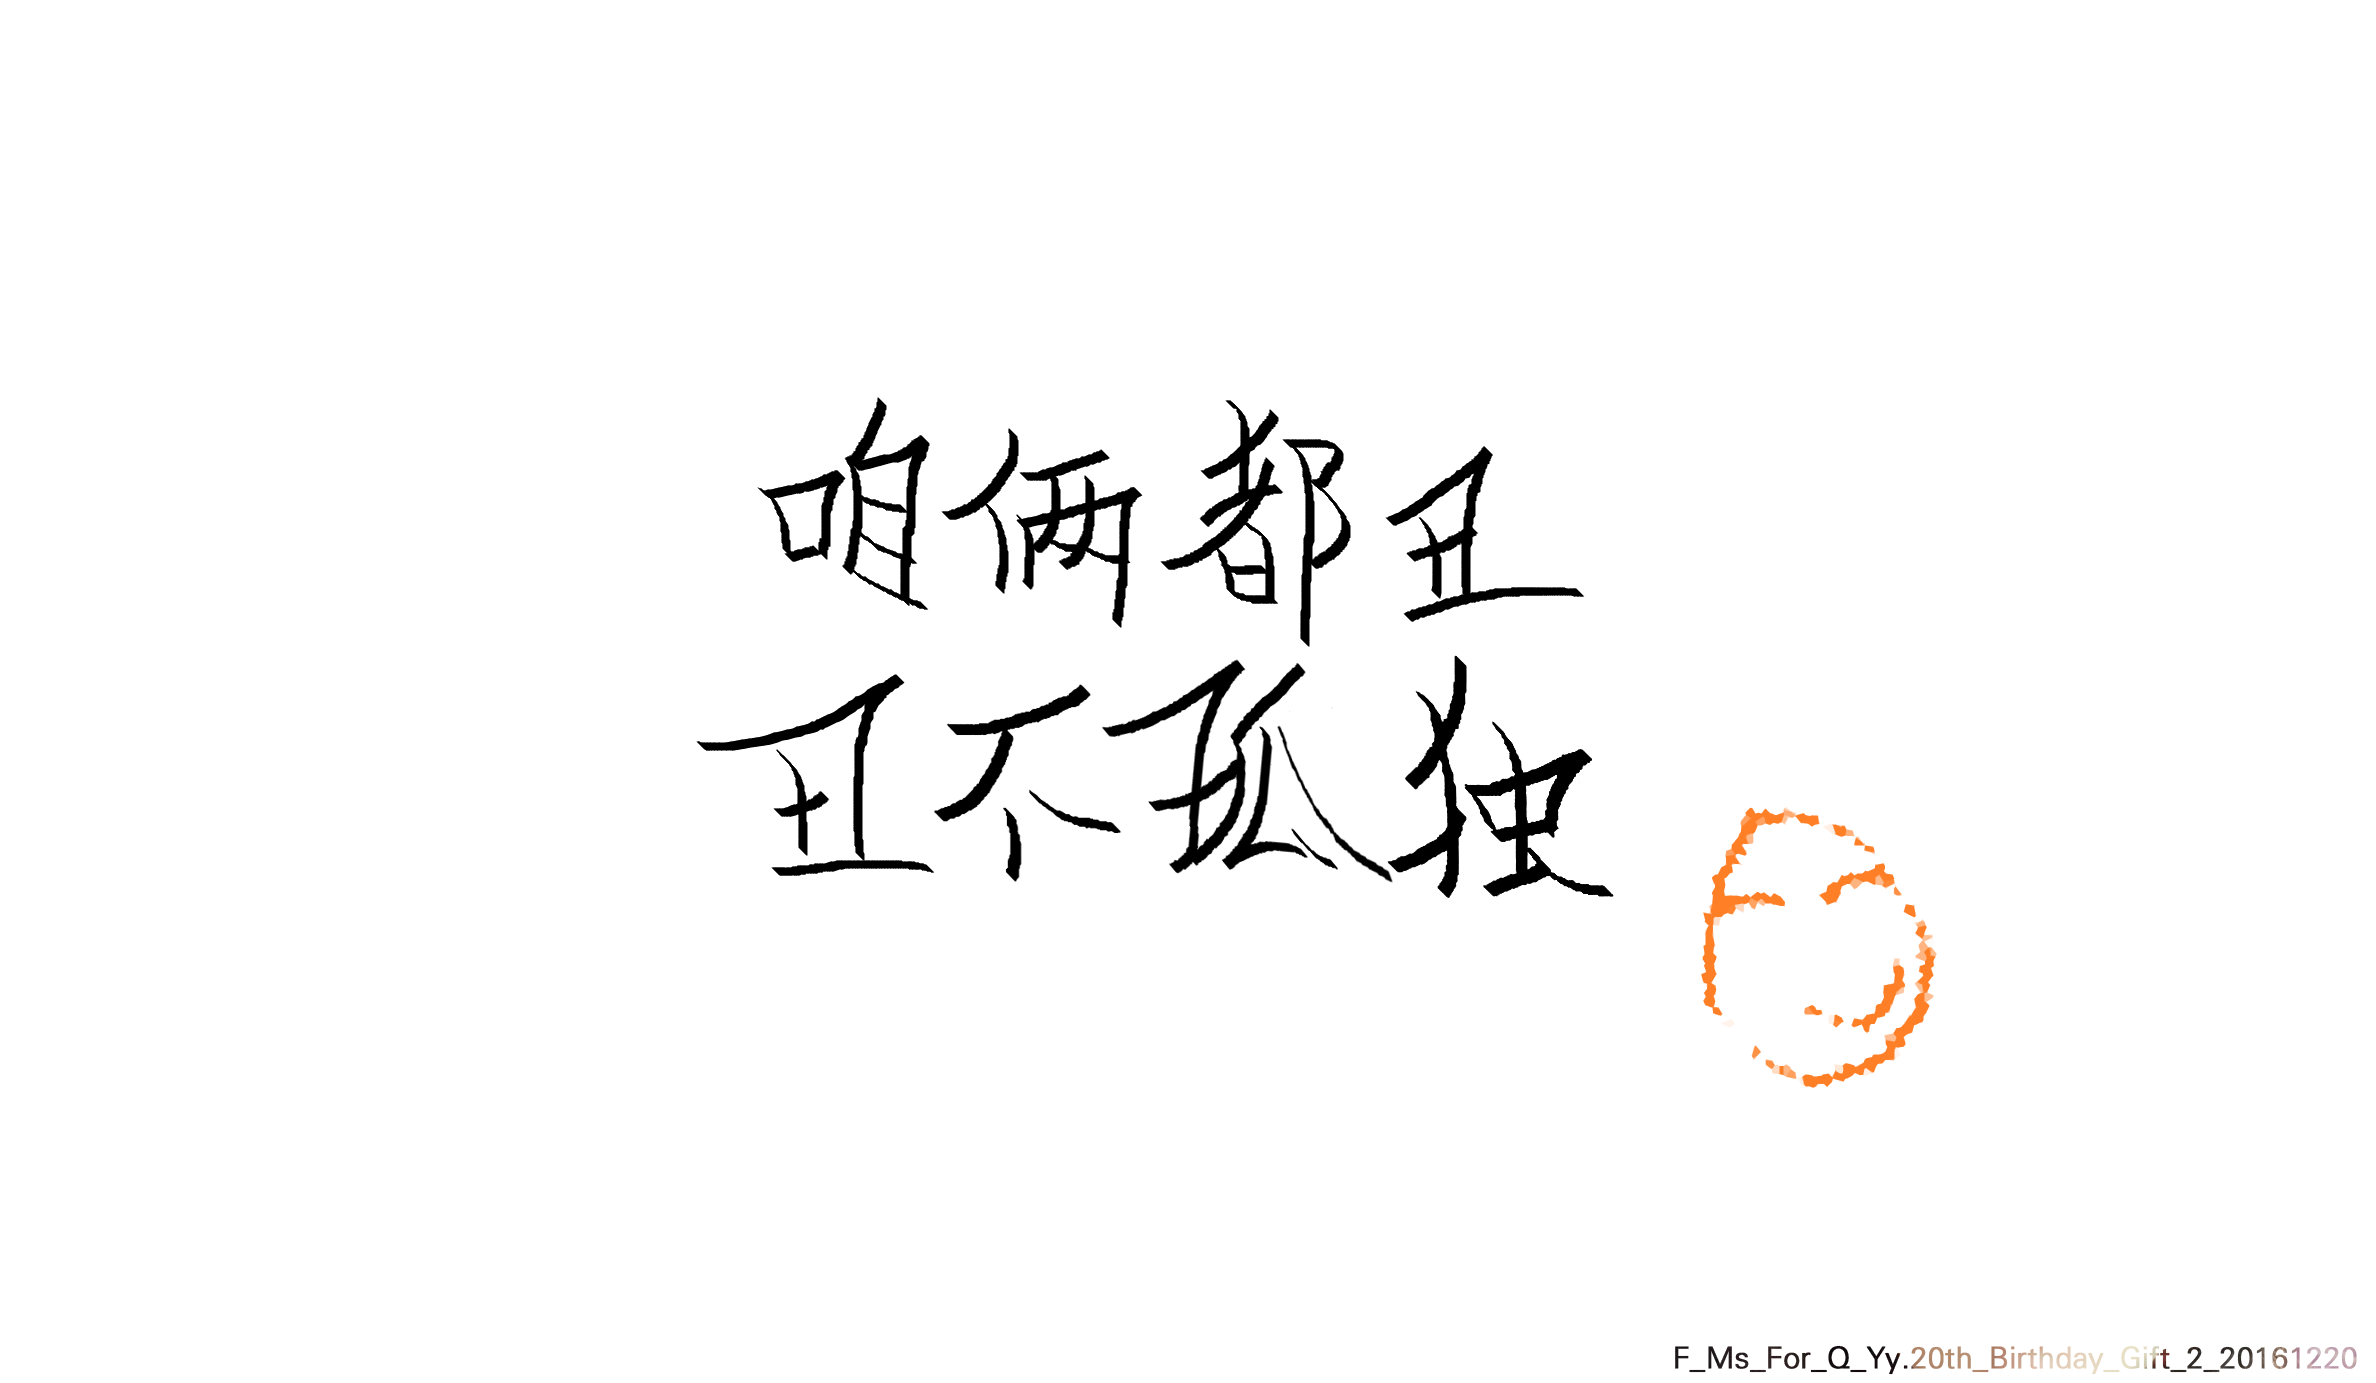 咱俩都丑
丑不孤独
F_Ms_For_Q_Yy.20th_Birthday_Gift_2_20161220